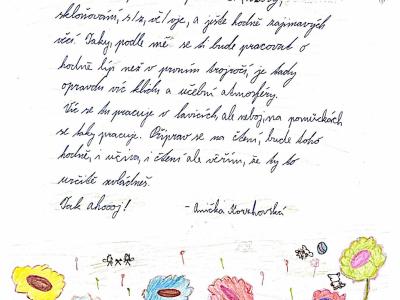 skloňování, s/z, vě/vje, a ještě hodně zajímavých
věcí. Taky, podle mě se ti bude pracovat o
hodně líp než v prvním trojročí, je tady
opravdu víc klidu a učební atmosféry.
Víc se tu pracuje v lavicích, ale neboj, na pomůckách
se taky pracuje. Připrav se na čtení, bude toho
hodně, i učiva, i čtení ale věřím, že ty to
určitě zvládneš.
Tak ahoooj! - Anička